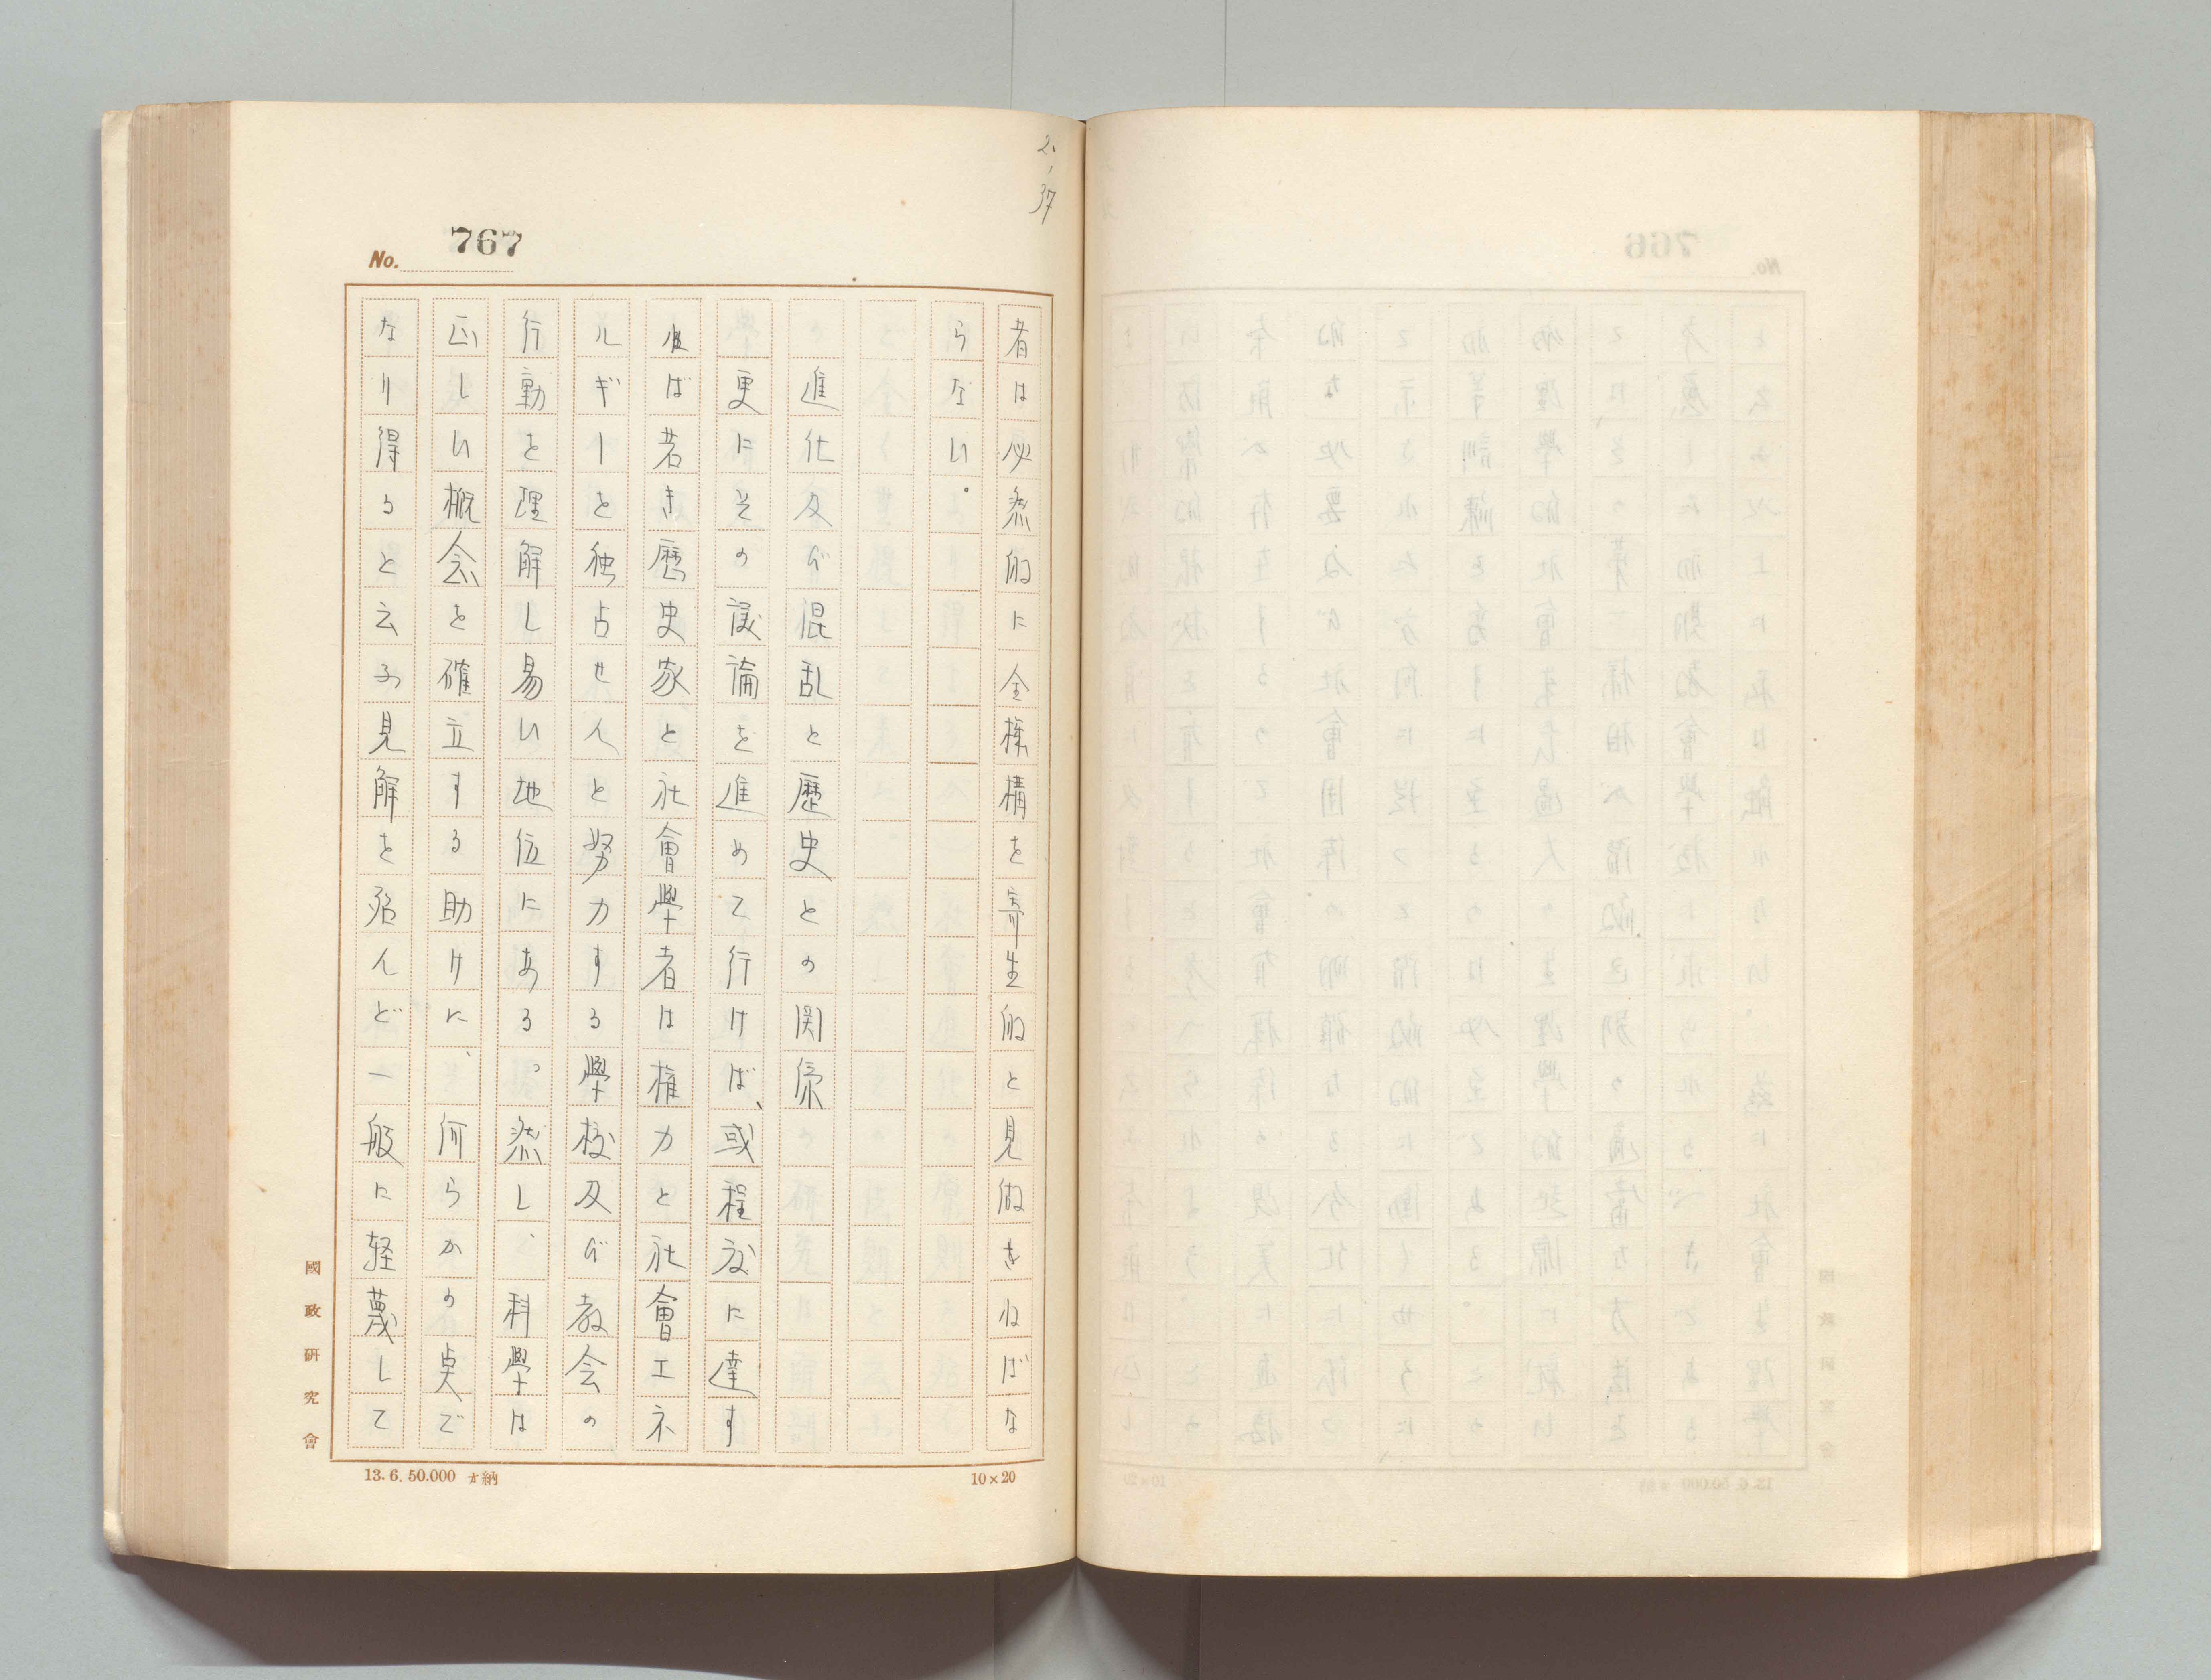 2.37
No. 767
者は必然的に全機構を寄生的と見做さねばな
らない。
進化及び混乱と歴史との関係
更にその議論を進めて行けば、或程度に達す
れば若き歴史家と社會學者は権力と社會エネ
ルギーを独占せんと努力する學校及び教会の
行動を理解し易い地位にある。然し、科學は
正しい概念を確立する助けに、何らかの点で
なり得ると云ふ見解を殆んど一般に軽蔑して
國政研究會
13.6.50.000 納
10×20